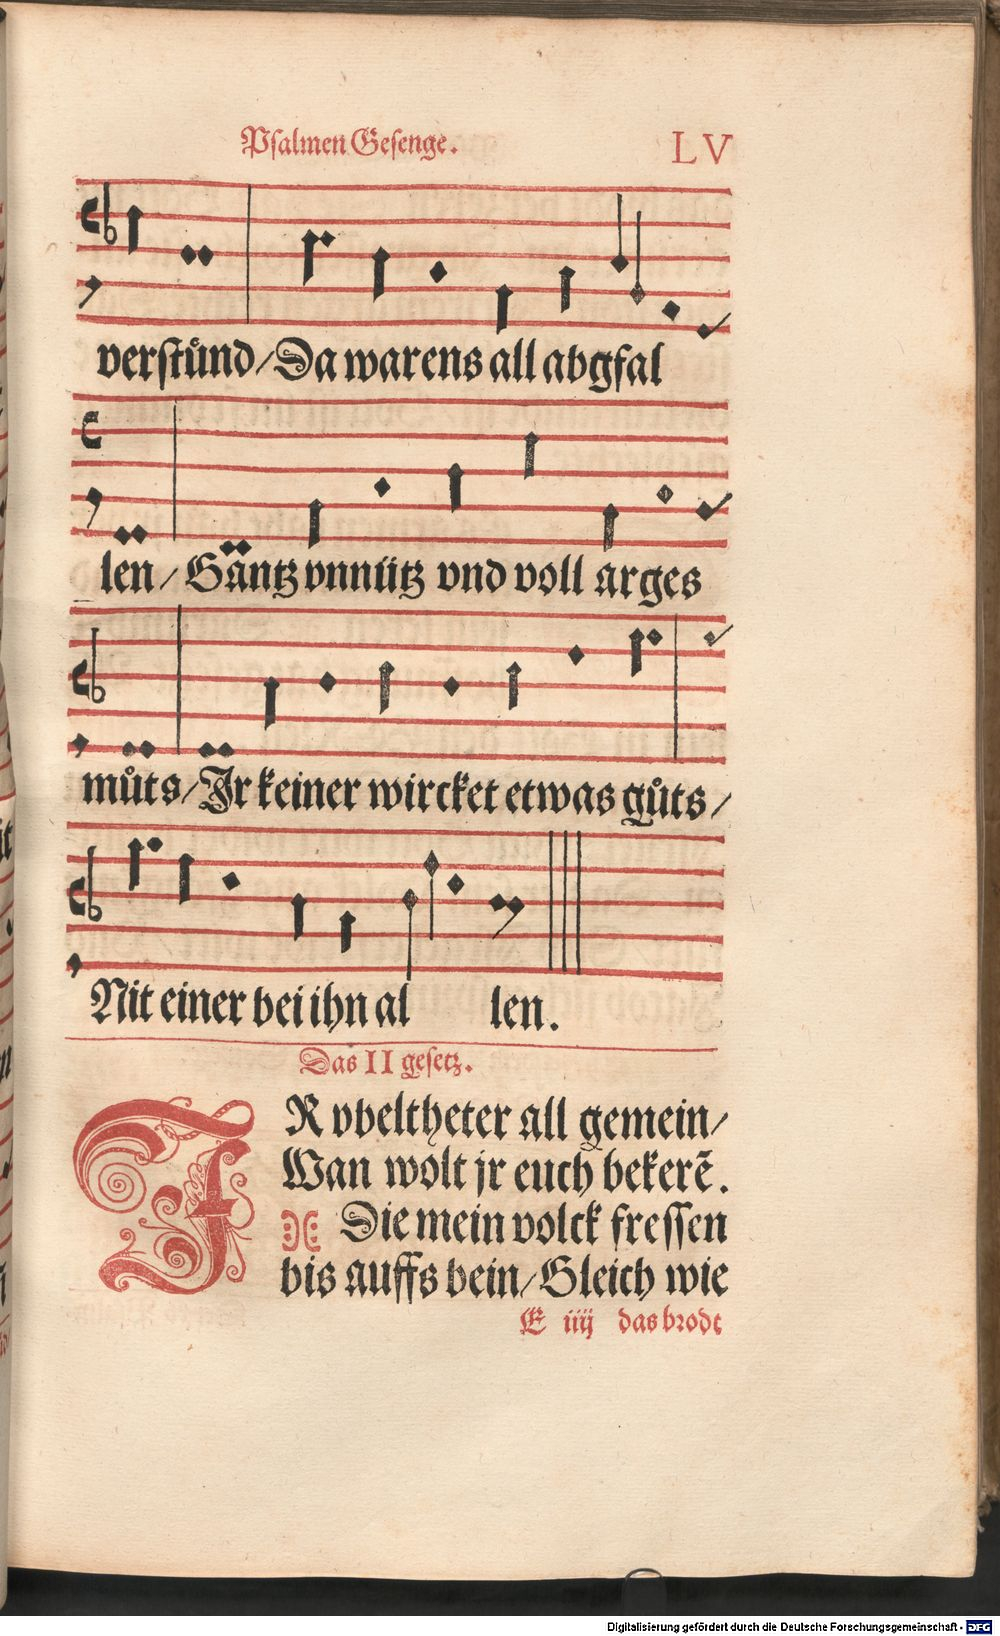 Psalmen Gesenge. LV
verstůnd/Da warens all abgfal
len/ Gäntz vnnütz vnd voll arges
můts/Ir keiner wircket etwas gůts/
Nit einer bei ihn al len.
Das II gesetz.
IR vbeltheter all gemein/
Wan wolt jr euch bekerẽ.
Die mein volck fressen
bis auffs bein/Gleich wie
E iiij das brodt
Digitalisierung gefördert durch die Deutsche Forschungsgemeinschaft - DFG